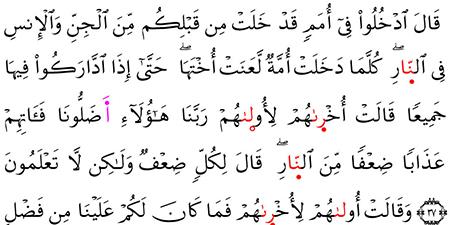 قَالَ ٱدْخُلُوا۟ فِىٓ أُمَمٍ قَدْ خَلَتْ مِن قَبْلِكُم مِّنَ ٱلْجِنِّ وَٱلْإِنسِ
فِى ٱلنَّارِ ۖ كُلَّمَا دَخَلَتْ أُمَّةٌ لَّعَنَتْ أُخْتَهَا ۖ حَتَّىٰٓ إِذَا ٱدَّارَكُوا۟ فِيهَا
جَمِيعًا قَالَتْ أُخْرَىٰهُمْ لِأُولَىٰهُمْ رَبَّنَا هَـٰٓؤُلَآءِ أَضَلُّونَا فَـَٔاتِهِمْ
عَذَابًا ضِعْفًا مِّنَ ٱلنَّارِ ۖ قَالَ لِكُلٍّ ضِعْفٌ وَلَـٰكِن لَّا تَعْلَمُونَ
٣٧ وَقَالَتْ أُولَىٰهُمْ لِأُخْرَىٰهُمْ فَمَا كَانَ لَكُمْ عَلَيْنَا مِن فَضْلٍ